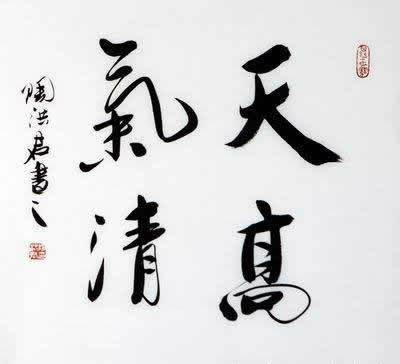 天高
氣清
陶洪君書之